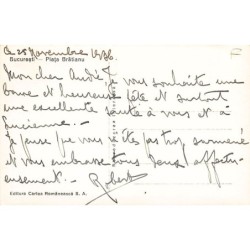 Ce 25 Novembre 1936
București - Piața Brătianu
Mon cher André, je vous souhaite une
bonne et heureuse fête et surtout
une excellente santé à vous et à
Lucienne. -
Je pense que vous n'êtes pas trop surmené
et vous embrasse tous deux affectu-
eusement. -
Robert
Editura Cartea Românească S. A.